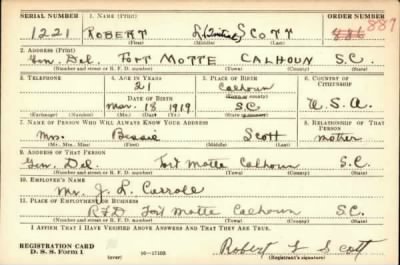 SERIAL NUMBER 1. NAME (Print) ORDER NUMBER
1221 ROBERT L (Initial) SCOTT 887
(First) (Middle) (Last)
2. ADDRESS (Print)
Gen. Del. FORT MOTTE CALHOUN S.C.
(Number and street or R. F. D. number) (Town) (County) (State)
3. TELEPHONE 4. AGE IN YEARS 5. PLACE OF BIRTH 6. COUNTRY OF CITIZENSHIP
21 Calhoun
DATE OF BIRTH (Town or county)
Mar. 18 1919 S.C. U.S.A.
(Exchange) (Number) (Mo.) (Day) (Yr.) (State or country)
7. NAME OF PERSON WHO WILL ALWAYS KNOW YOUR ADDRESS 8. RELATIONSHIP OF THAT PERSON
Mrs. Bessie Scott mother
(Mr., Mrs., Miss) (First) (Middle) (Last)
9. ADDRESS OF THAT PERSON
Gen. Del. Fort Motte Calhoun S.C.
(Number and street or R. F. D. number) (Town) (County) (State)
10. EMPLOYER'S NAME
Mr. J. L. Carroll
11. PLACE OF EMPLOYMENT OR BUSINESS
RFD Fort Motte Calhoun S.C.
(Number and street or R. F. D. number) (Town) (County) (State)
I AFFIRM THAT I HAVE VERIFIED ABOVE ANSWERS AND THAT THEY ARE TRUE.
REGISTRATION CARD
D. S. S. Form 1 (over) Robert L Scott
(Registrant's signature)